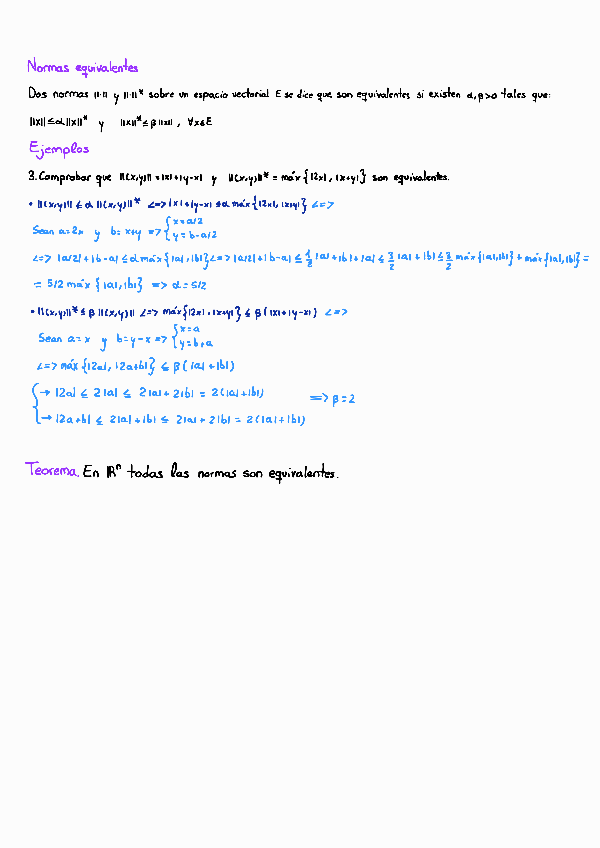 Normas equivalentes
Dos normas ||·|| y ||·||* sobre un espacio vectorial E se dice que son equivalentes si existen α,β>0 tales que:
||x|| ≤ α||x||* y ||x||* ≤ β||x||, ∀x∈E
Ejemplos
3. Comprobar que ||(x,y)|| = |x|+|y-x| y ||(x,y)||* = máx{|2x|, |x+y|} son equivalentes.
• ||(x,y)|| ≤ α ||(x,y)||* <=> |x|+|y-x| ≤ α máx{|2x|, |x+y|} <=>
Sean a=2x y b=x+y => { x=a/2
y=b-a/2
<=> |a/2|+|b-a| ≤ α máx{|a|,|b|} <=> |a/2|+|b-a| ≤ 1/2 |a|+|b|+|a| ≤ 3/2 |a|+|b| ≤ 3/2 máx{|a|,|b|} + máx{|a|,|b|} =
= 5/2 máx{|a|,|b|} => α=5/2
• ||(x,y)||* ≤ β ||(x,y)|| <=> máx{|2x|, |x+y|} ≤ β(|x|+|y-x|) <=>
Sean a=x y b=y-x => { x=a
y=b+a
<=> máx{|2a|, |2a+b|} ≤ β(|a|+|b|)
→ |2a| ≤ 2|a| ≤ 2|a|+2|b| = 2(|a|+|b|)
=> β=2
→ |2a+b| ≤ 2|a|+|b| ≤ 2|a|+2|b| = 2(|a|+|b|)
Teorema. En ℝⁿ todas las normas son equivalentes.